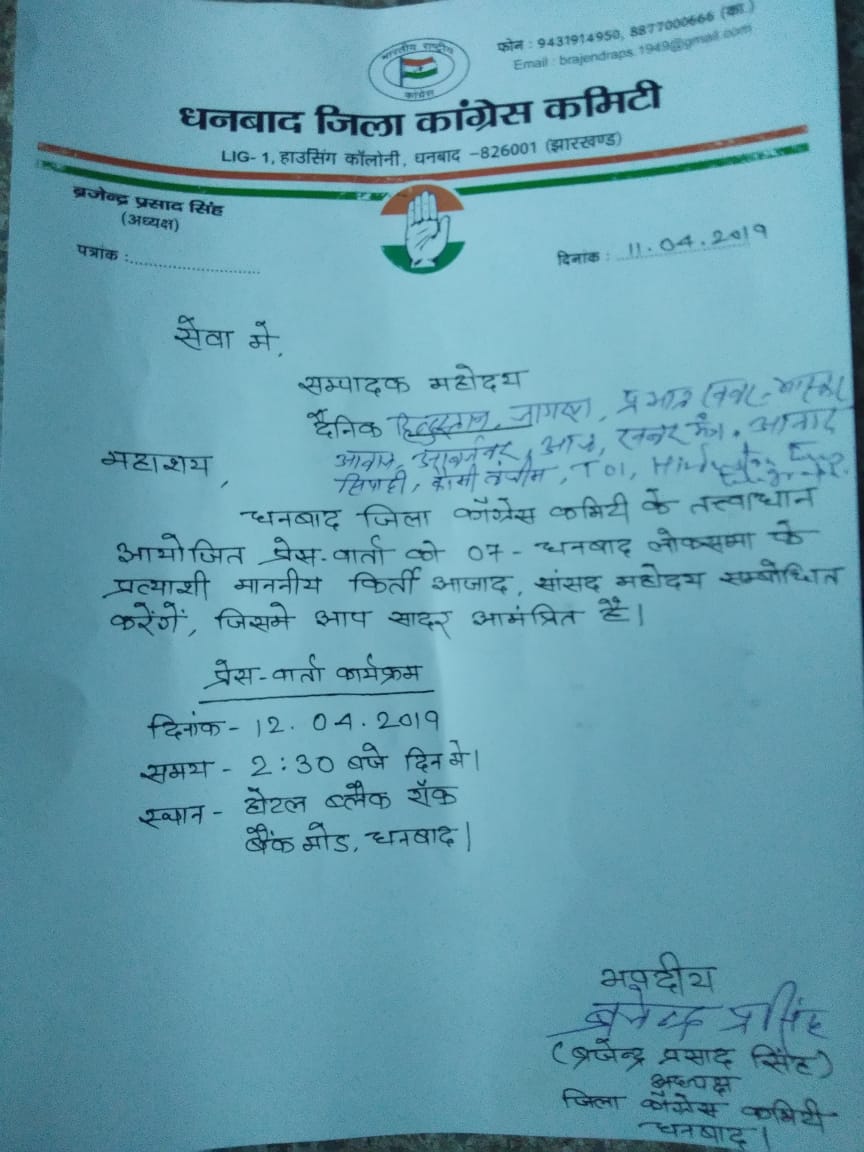 फोन : 9431914950, 8877000666 (का.)
Email : brajendraps.1949@gmail.com
भारतीय राष्ट्रीय
कांग्रेस
धनबाद जिला कांग्रेस कमिटी
LIG- 1, हाउसिंग कॉलोनी, धनबाद –826001 (झारखण्ड)
ब्रजेन्द्र प्रसाद सिंह
(अध्यक्ष)
पत्रांक :
दिनांक : 11.04.2019
सेवा मे,
सम्पादक महोदय
दैनिक हिन्दुस्तान, जागरण, प्रभात खबर, भास्कर
आवाज, आज, खबर मंत्र, आजाद
सिपाही, कौमी तंजीम, TOI,
महाशय,
धनबाद जिला काँग्रेस कमिटी के तत्त्वाधान
आयोजित प्रेस-वार्ता को 07- धनबाद लोकसभा के
प्रत्याशी माननीय किर्ती आजाद, सांसद महोदय सम्बोधित
करेंगें, जिसमे आप सादर आमंत्रित हैं।
प्रेस-वार्ता कार्यक्रम
दिनांक - 12.04.2019
समय - 2:30 बजे दिन मे।
स्थान - होटल ब्लैक रॉक
बैंक मोड, धनबाद।
भवदीय
ब्रजेन्द्र प्र सिंह
(ब्रजेन्द्र प्रसाद सिंह)
अध्यक्ष
जिला काँग्रेस कमिटी
धनबाद।